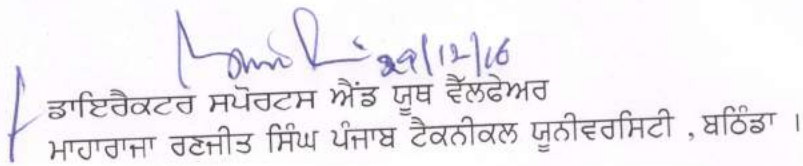 29/12/16
ਡਾਇਰੈਕਟਰ ਸਪੋਰਟਸ ਐਂਡ ਯੂਥ ਵੈੱਲਫੇਅਰ
ਮਾਹਾਰਾਜਾ ਰਣਜੀਤ ਸਿੰਘ ਪੰਜਾਬ ਟੈਕਨੀਕਲ ਯੂਨੀਵਰਸਿਟੀ , ਬਠਿੰਡਾ ।